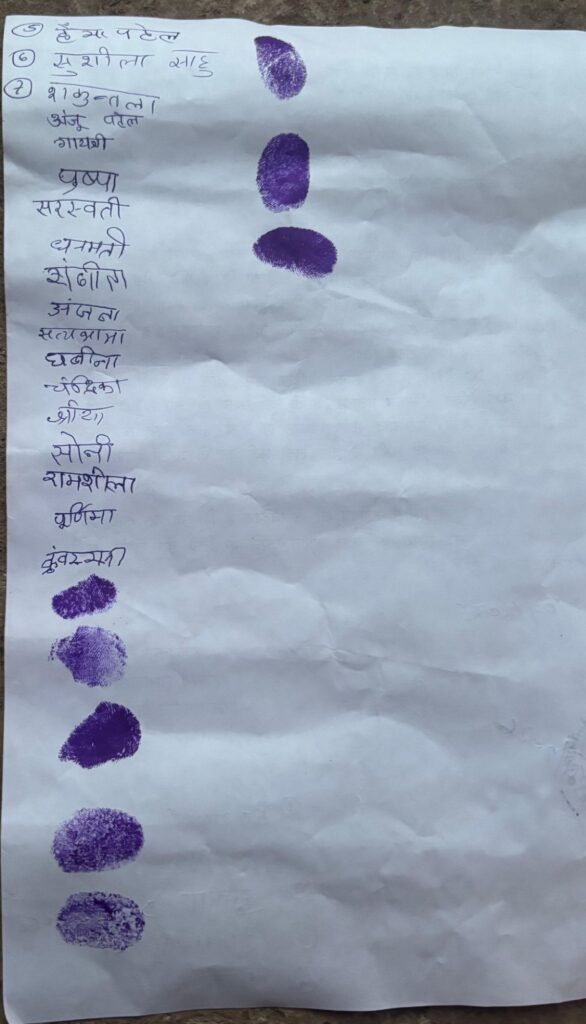 ⑤ हेमा पटेल
⑥ सुशीला साहु
⑦ शकुन्तला
अंजू पटेल
गायत्री
पुष्पा
सरस्वती
धनमती
संगीता
अंजना
सत्यभामा
चंद्रिका
सोनी
रामशीला
पूर्णिमा